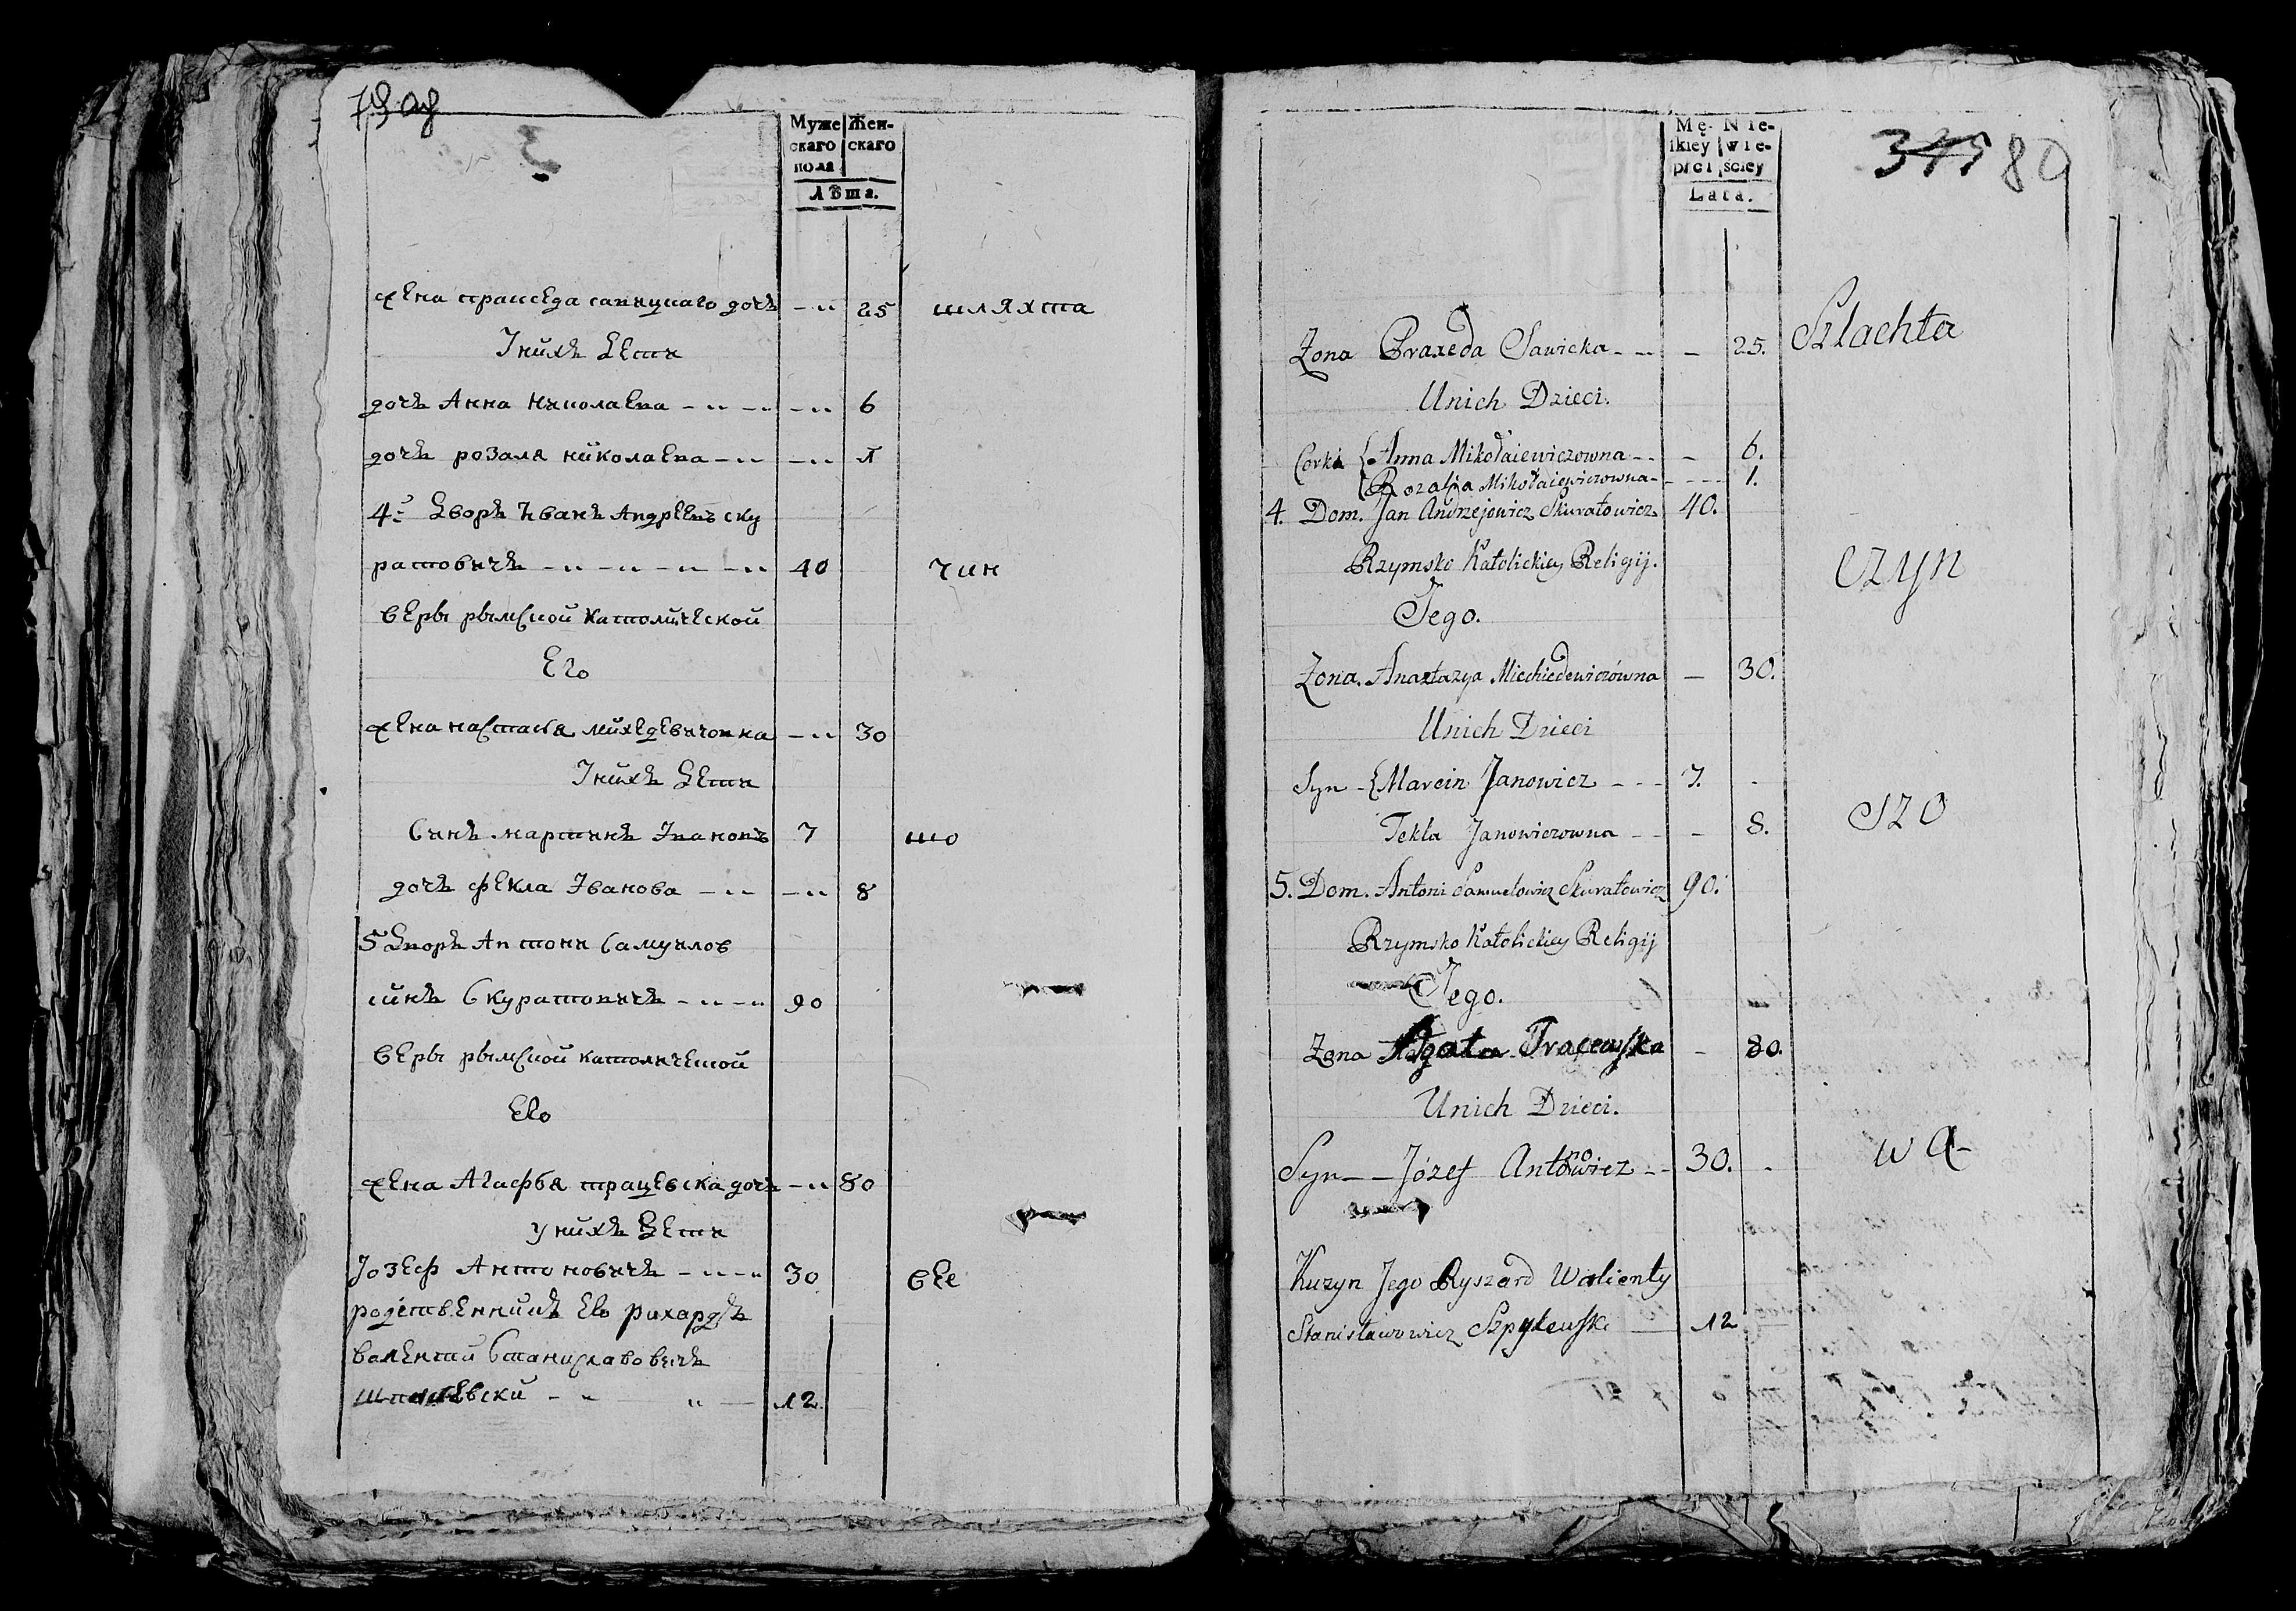 79 об
Муже Жен-
скаго скаго
пола
Лѣта.
жена пракседа савицкаго дочь -" 25 шляхта
У нихъ дети
дочь Анна николаева -" -" -" 6
дочь розаля николаева -" -" 1
4й дворъ Иванъ Андреевъ ску
ратовичъ -" -" -" -" 40 чин
веры рымской католической
Его
жена настасия михедевичовна -" 30
У нихъ дети
Синъ мартинъ Ивановъ 7 шо
дочь фекла Иванова -" -" 8
5 дворъ Антони Самуилов
синъ Скуратовичъ -" -" 90
веры рымской католической
Его
жена Агафья трацевска дочь -" 80
у нихъ дети
Јозеф Антоновичъ -" -" 30 вее
родственникъ Его рихардъ
валенти Станиславовичъ
шпилевски - " " 12.
Mę- Nie-
ſkiey wie-
płci ściey
Lata.
345 80
Żona Praxeda Sawicka - 25. Szlachta
Unich Dzieci.
Corki Anna Mikołaiewiczowna - 6.
Rozalia Mikołaiewiczowna - 1.
4. Dom. Jan Andrzejowicz Skuratowicz 40.
Rzymsko Katolickiey Religij. czyn
Jego.
Żona. Anaztazya Miechiedewiczówna - 30.
Unich Dzieci
Syn - Marcin Janowicz - 7. -
Tekla Janowiczowna - 8. szo
5. Dom. Antoni Samuelowicz Skuratowicz 90.
Rzymsko Katolickiey Religij
Jego.
Żona Agata Tracewſka - 80.
Unich Dzieci.
Syn - Józef Antonowicz - 30. - wa-
Kuzyn Jego Ryszard Walienty
Stanisławowicz Szpylewſki 12